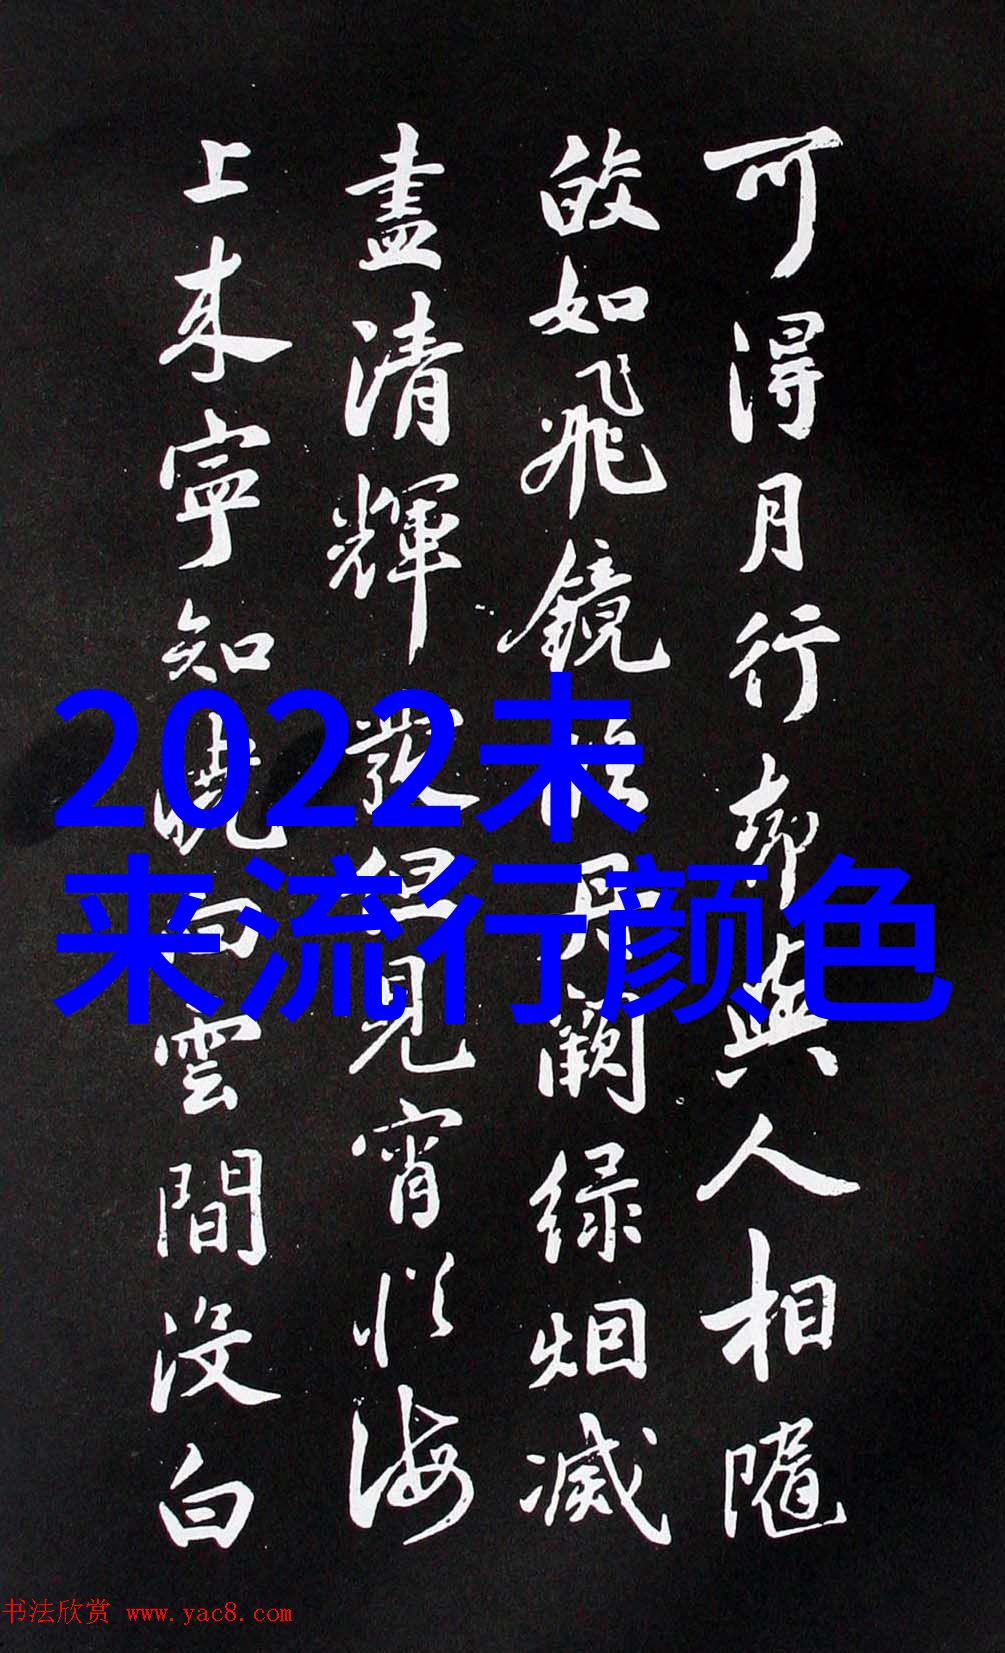 可得月行却與人相隨
皎如飛鏡臨丹闕緑烟滅
盡清輝發但見宵從海
上来寧知曉向雲間没白
2022未
来流行颜色
书法欣赏 www.yac8.com